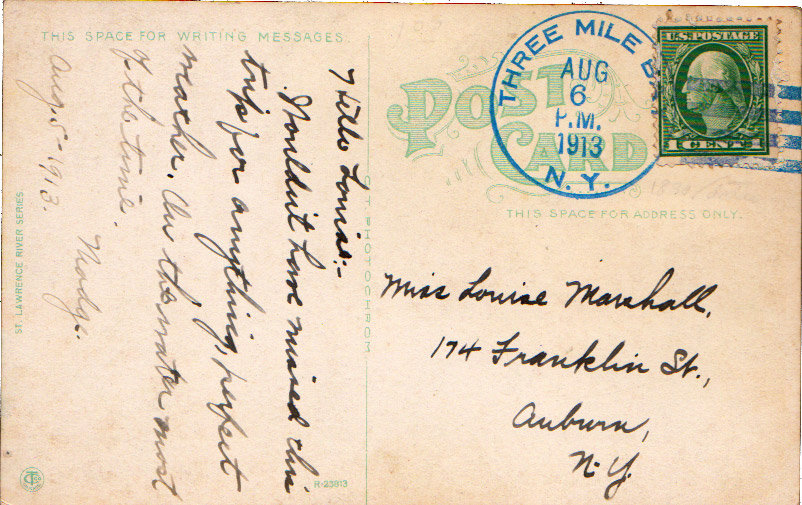 THIS SPACE FOR WRITING MESSAGES.
POST CARD
THIS SPACE FOR ADDRESS ONLY.
THREE MILE B
AUG
6
P.M.
1913
N. Y.
U.S. POSTAGE
1 CENT 1
Hello Louise:-
Wouldn't have missed this
trip for anything, perfect
weather. On the water most
of the time.
Madge.
Aug. 5-1913.
Miss Louise Marshall,
174 Franklin St.,
Auburn,
N.Y.
ST. LAWRENCE RIVER SERIES
C. T. PHOTOCHROM
R-23813